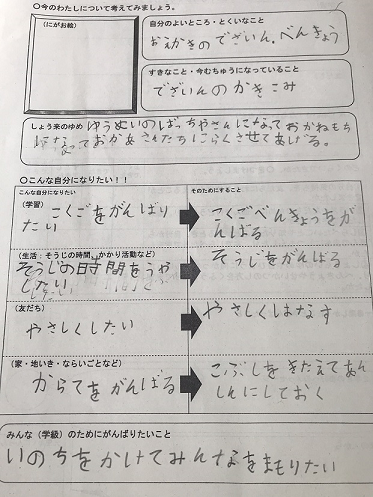 ○今のわたしについて考えてみましょう。
(にがお絵)
自分のよいところ・とくいなこと
おえかきのでざいん。べんきょう
すきなこと・今むちゅうになっていること
でざいんのかきこみ
しょう来のゆめ ゆうめいのばっちゃさんになっておかねもち
になっておかあさんたちにらくさせてあげる。
○こんな自分になりたい！！
こんな自分になりたい
そのためにすること
(学習)
こくごをがんばり
たい
こくごべんきょうをが
んばる
(生活：そうじの時間、かかり活動など)
そうじの時間をうや
したい
そうじをがんばる
(友だち)
やさしくしたい
やさしくはなす
(家・地いき・ならいごとなど)
からてをがんばる
こぶしをきたえてあん
しんにしておく
みんな（学級）のためにがんばりたいこと
いのちをかけてみんなをまもりたい